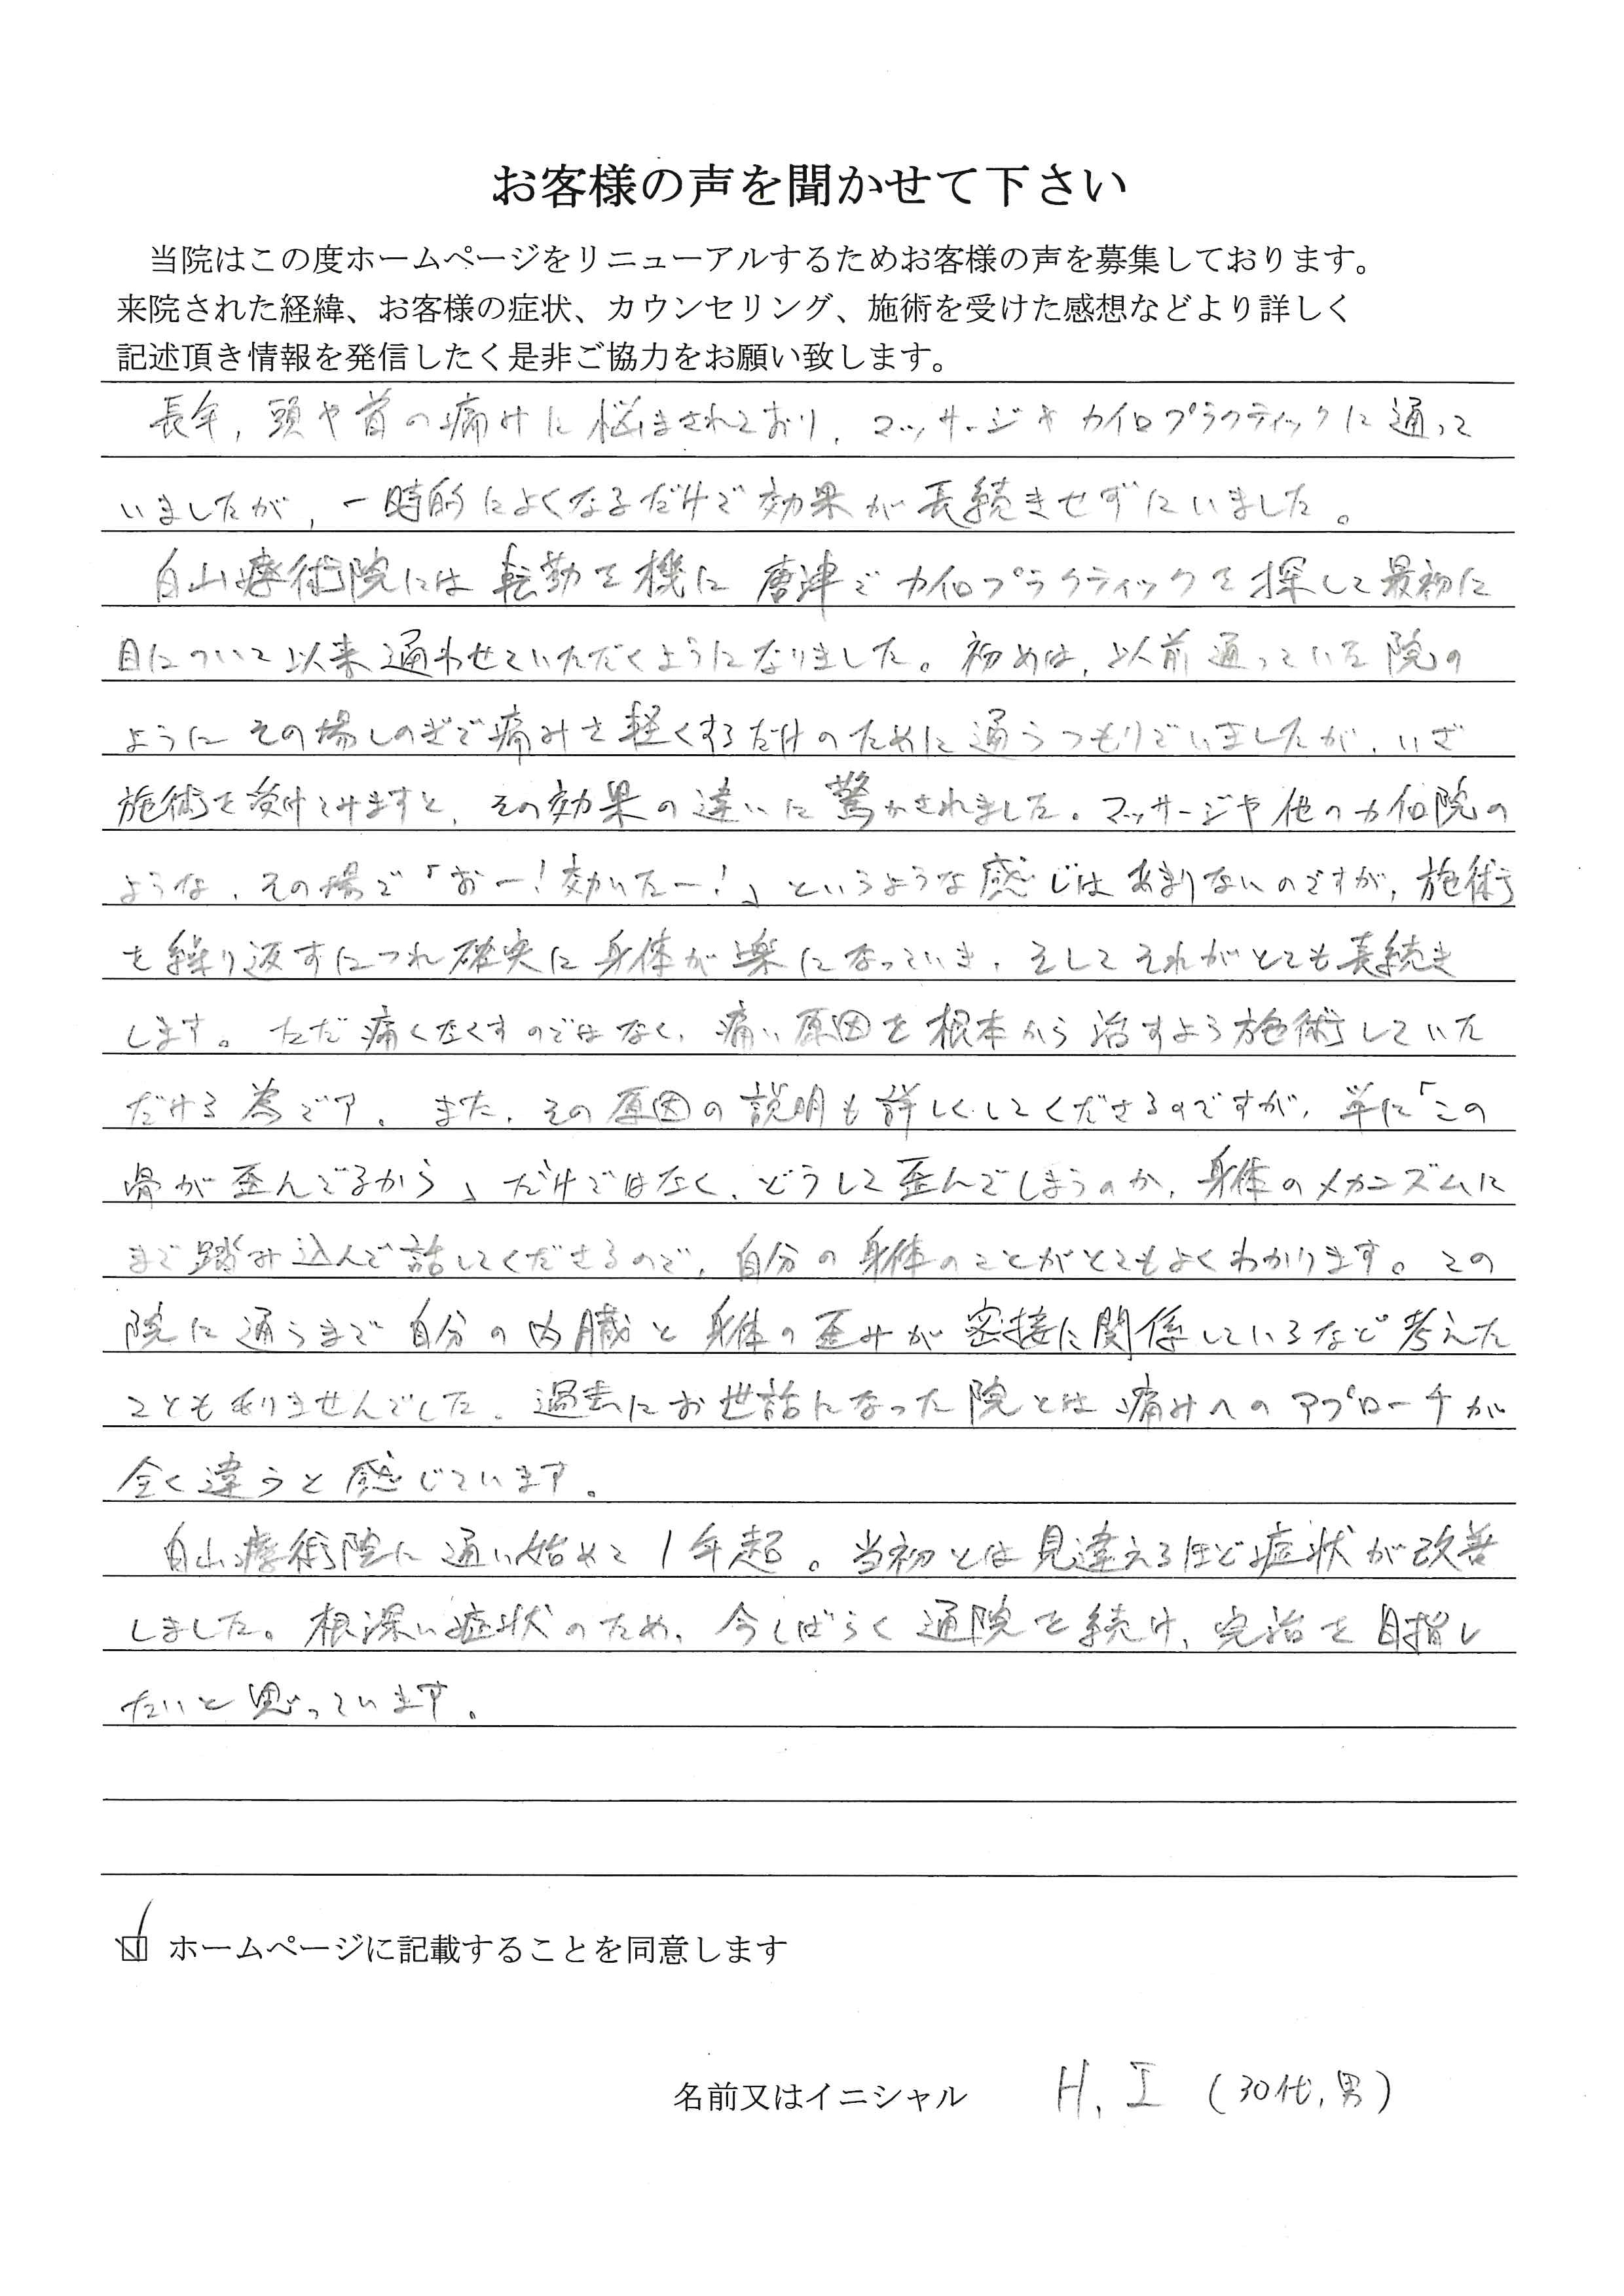 お客様の声を聞かせて下さい
当院はこの度ホームページをリニューアルするためお客様の声を募集しております。
来院された経緯、お客様の症状、カウンセリング、施術を受けた感想などより詳しく
記述頂き情報を発信したく是非ご協力をお願い致します。
長年，頭や首の痛みに悩まされており，マッサージやカイロプラクティックに通って
いましたが，一時的によくなるだけで効果が長続きせずにいました。
白山療術院には転勤を機に唐津でカイロプラクティックを探して最初に
目について以来通わせていただくようになりました。初めは，以前通っていた院の
ようにその場しのぎで痛みを軽くするだけのために通うつもりでいましたが，いざ
施術を受けてみますと，その効果の違いに驚かされました。マッサージや他のカイロ院の
ような，その場で「おー！効いたー！」というような感じはあまりないのですが，施術
を繰り返すにつれ確実に身体が楽になっていき，そしてそれがとても長続き
します。ただ痛くなくすのではなく，痛い原因を根本から治すよう施術していた
だける為です。また，その原因の説明も詳しくしてくださるのですが，単に「この
骨が歪んでるから」だけではなく，どうして歪んでしまうのか，身体のメカニズムに
まで踏み込んで話してくださるので，自分の身体のことがとてもよくわかります。この
院に通うまで自分の内臓と身体の歪みが密接に関係しているなど考えた
こともありませんでした。過去にお世話になった院とは痛みへのアプローチが
全く違うと感じています。
白山療術院に通い始めて1年超。当初とは見違えるほど症状が改善
しました。根深い症状のため，今しばらく通院を続け，完治を目指し
たいと思っています。
☑ ホームページに記載することを同意します
名前又はイニシャル H.I (30代,男)